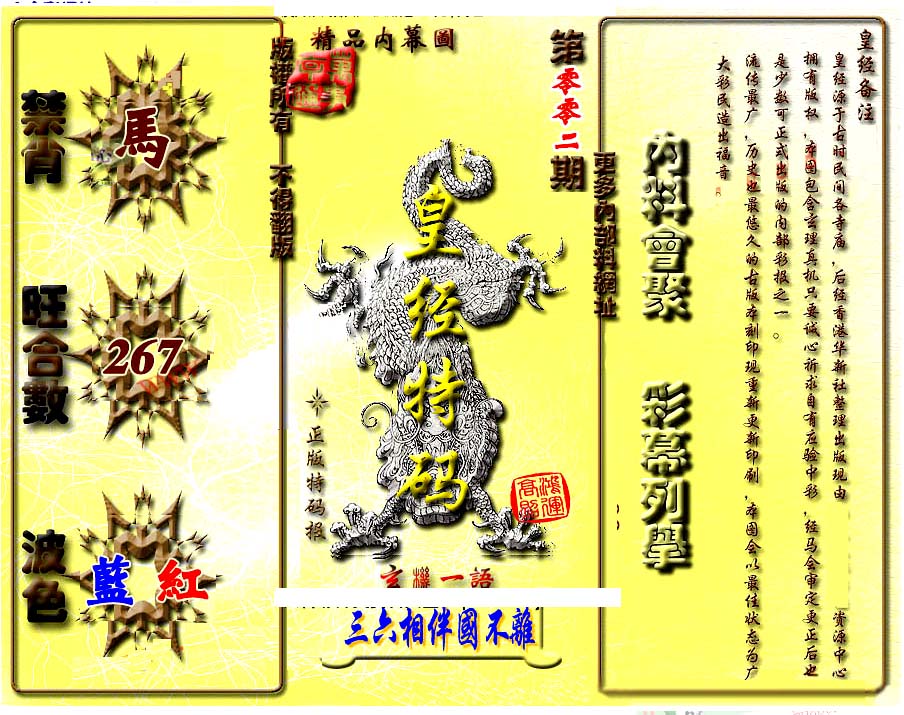 精品内幕圖
第零零二期
版權所有 不得翻版
更多内部料網址
禁肖
馬
旺合數
267
波色
藍 紅
皇经特码
正版特码报
鴻運高照
玄機一語
三六相伴國不離
内料會聚
彩幕列舉
皇经备注
皇经源于古时民间各寺庙,后经香港华新社整理出版现由 资源中心
拥有版权,本图包含玄理真机只要诚心祈求自有应验中彩,经马会审定更正后也
是少数可正式出版的内部彩报之一。
流传最广,历史也最悠久的古版本刻印现重新更新印刷,本图会以最佳状态为广
大彩民造出福音。